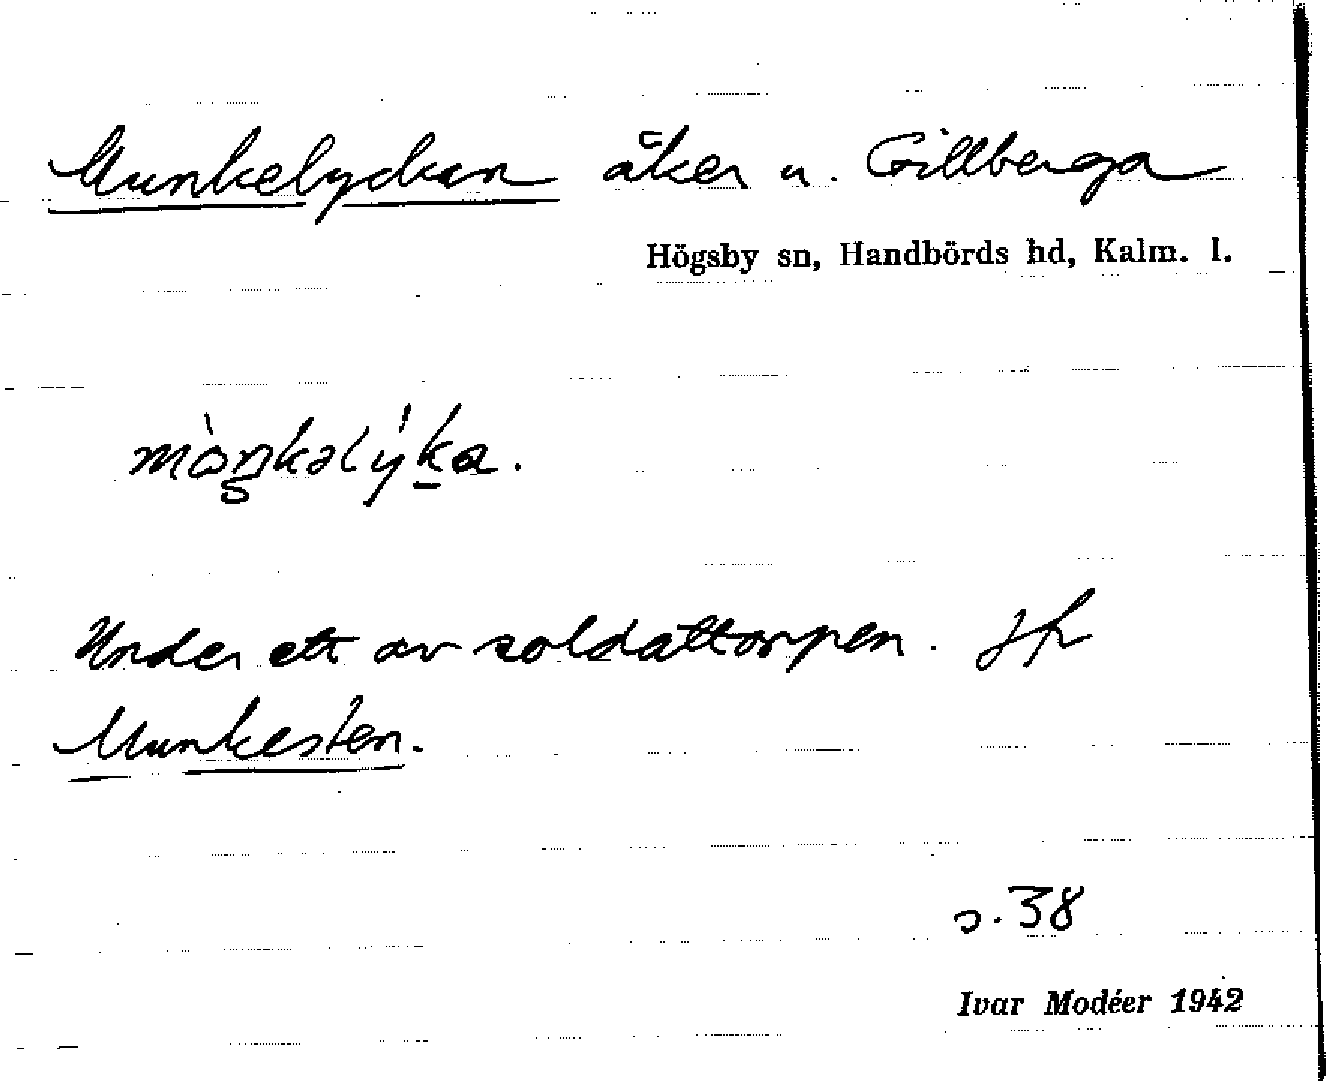 Munkelyckan åker u. Gillberga
Högsby sn, Handbörds hd, Kalm. l.
mòŋkəlýka.
Under ett av soldattorpen. Jfr
Munkesten.
s. 38
Ivar Modéer 1942